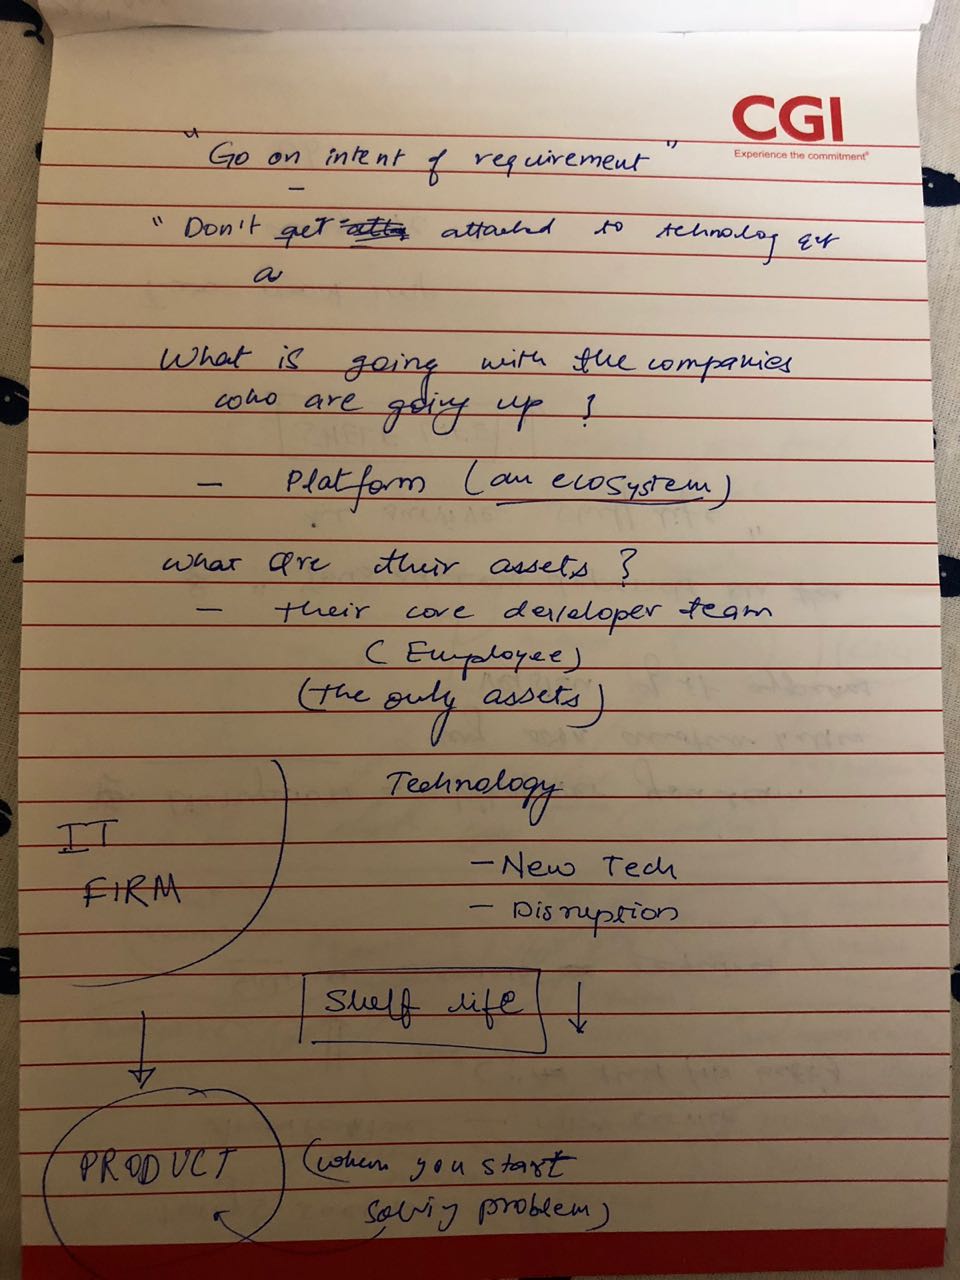 CGI
Experience the commitment®
"Go on intent of requirement"
"Don't get attached to technolog
a
What is going with the companies
who are going up ?
- Platform (an ecosystem)
What are their assets ?
- their core developer team
(Employee)
(the only assets)
Technology
IT
FIRM
- New Tech
- Disruption
Shelf life ↓
PRODUCT (when you start
solvig problem)